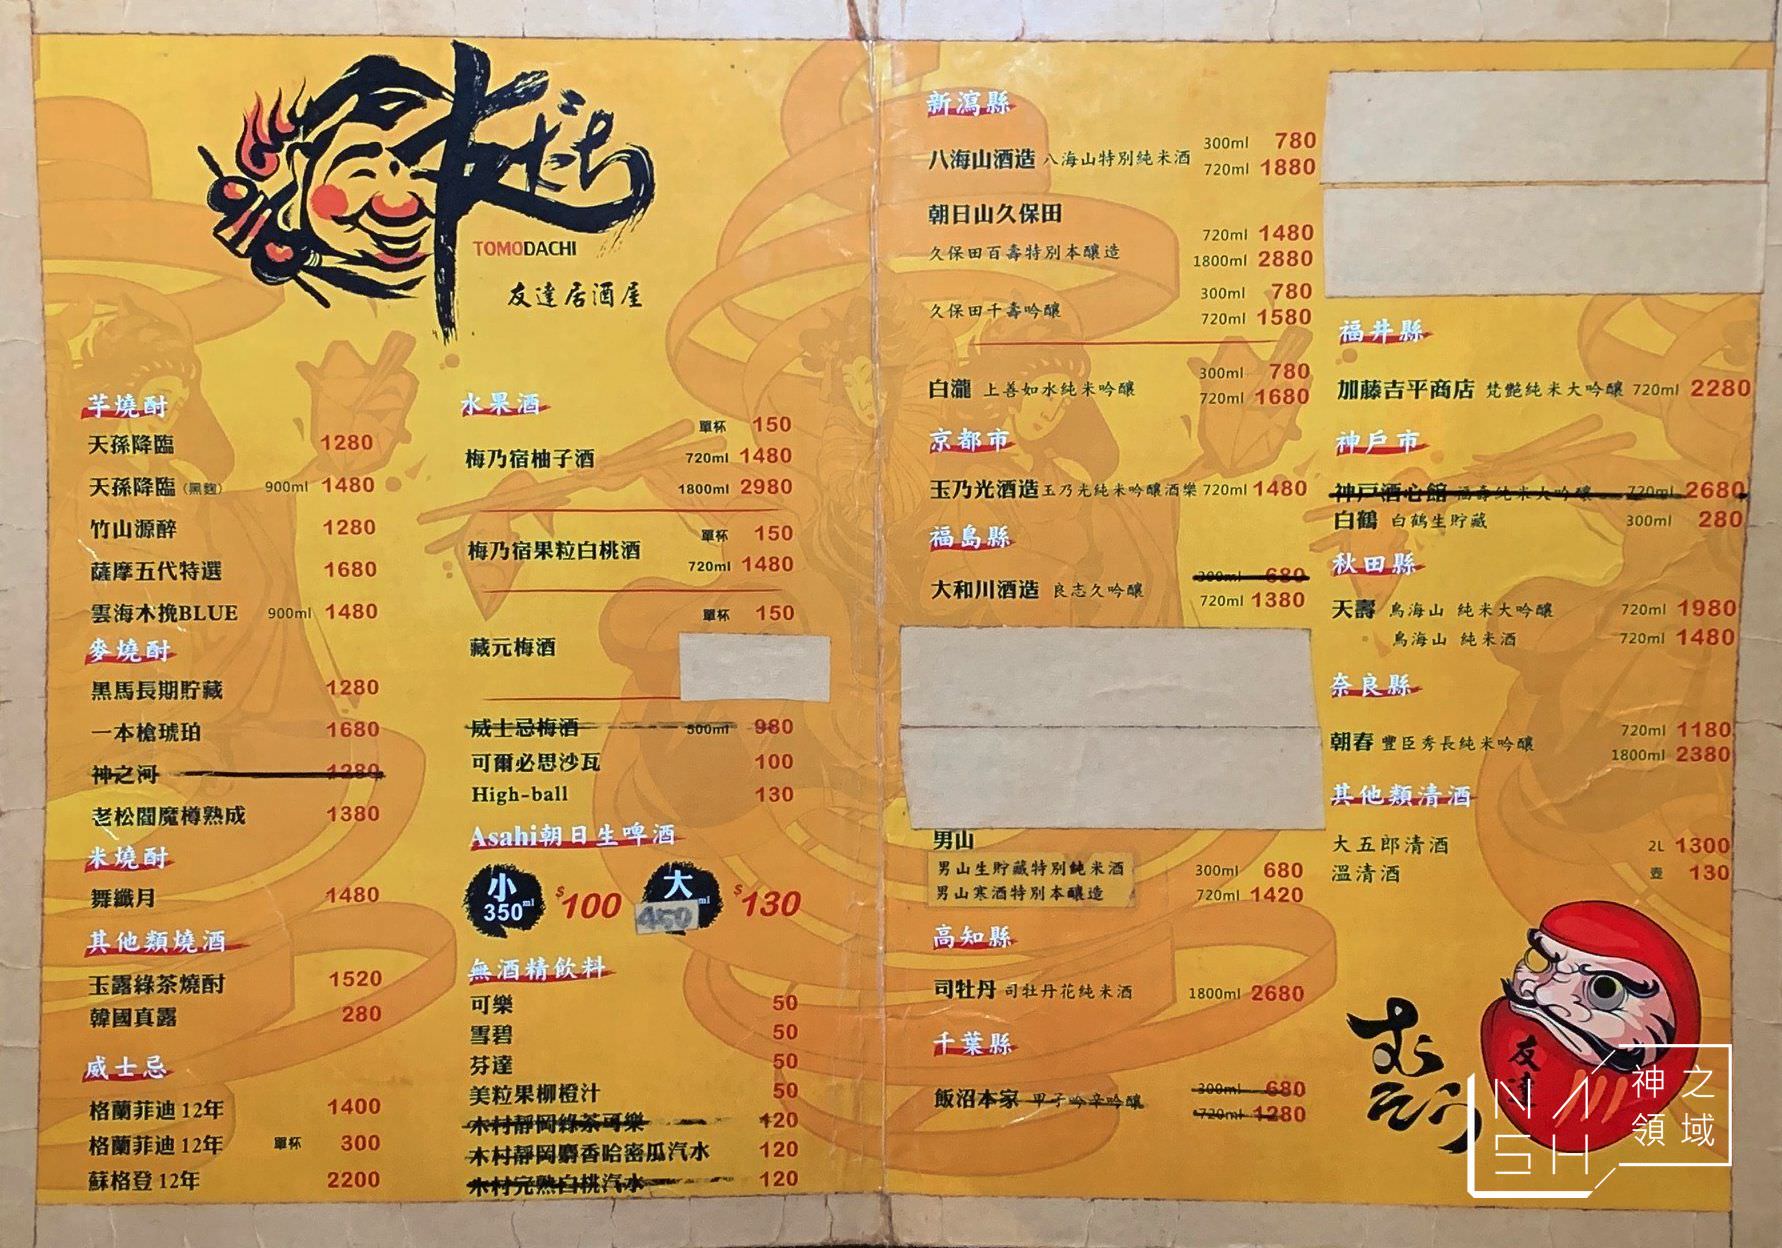 友だち
TOMODACHI
友達居酒屋
芋燒酎
天孫降臨 1280
天孫降臨(黑麴) 900ml 1480
竹山源醉 1280
薩摩五代特選 1680
雲海木挽BLUE 900ml 1480
麥燒酎
黑馬長期貯藏 1280
一本槍琥珀 1680
神之河 1280
老松閻魔樽熟成 1380
米燒酎
舞纖月 1480
其他類燒酒
玉露綠茶燒酎 1520
韓國真露 280
威士忌
格蘭菲迪 12年 1400
格蘭菲迪 12年 單杯 300
蘇格登 12年 2200
水果酒
單杯 150
梅乃宿柚子酒 720ml 1480
1800ml 2980
單杯 150
梅乃宿果粒白桃酒
720ml 1480
單杯 150
藏元梅酒
威士忌梅酒 500ml 980
可爾必思沙瓦 100
High-ball 130
Asahi朝日生啤酒
小 350ml $100 大 450 ml $130
無酒精飲料
可樂 50
雪碧 50
芬達 50
美粒果柳橙汁 50
木村靜岡綠茶可樂 120
木村靜岡麝香哈密瓜汽水 120
木村完熟白桃汽水 120
新瀉縣
300ml 780
八海山酒造 八海山特別純米酒
720ml 1880
朝日山久保田
720ml 1480
久保田百壽特別本釀造
1800ml 2880
300ml 780
久保田千壽吟釀
720ml 1580
300ml 780
白瀧 上善如水純米吟釀
720ml 1680
京都市
玉乃光酒造 玉乃光純米吟釀酒樂 720ml 1480
福島縣
300ml 680
大和川酒造 良志久吟釀
720ml 1380
男山
男山生貯藏特別純米酒 300ml 680
男山寒酒特別本釀造 720ml 1420
高知縣
司牡丹 司牡丹花純米酒 1800ml 2680
千葉縣
300ml 680
飯沼本家 甲子吟辛吟釀
720ml 1280
福井縣
加藤吉平商店 梵艷純米大吟釀 720ml 2280
神戶市
神戶酒心館 福壽純米大吟釀 720ml 2680
白鶴 白鶴生貯藏 300ml 280
秋田縣
天壽 鳥海山 純米大吟釀 720ml 1980
鳥海山 純米酒 720ml 1480
奈良縣
720ml 1180
朝春 豐臣秀長純米吟釀
1800ml 2380
其他類清酒
大五郎清酒 2L 1300
溫清酒 壺 130
友達
NASH
神之
領域